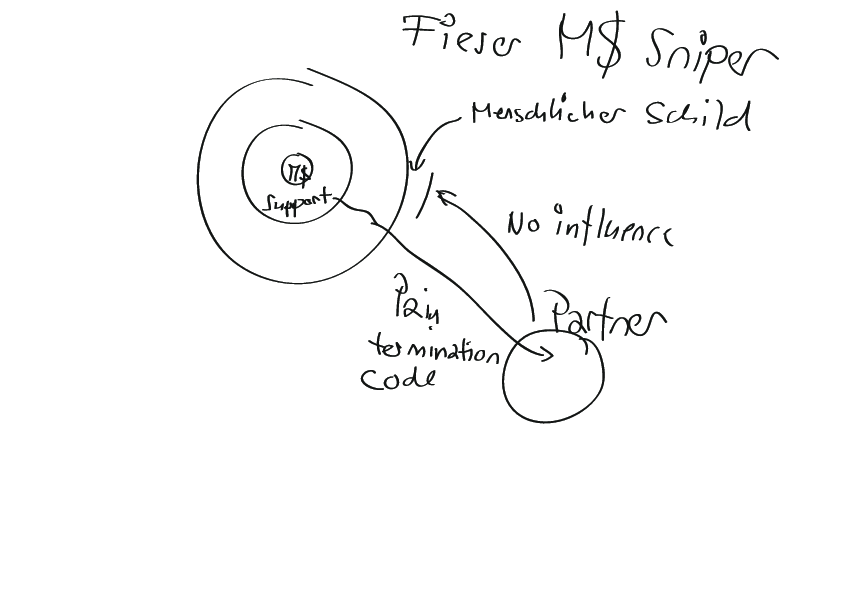 Fieser M$ Sniper
Menschlicher Schild
M$
Support
No influence
Pain
termination
Code
Partner